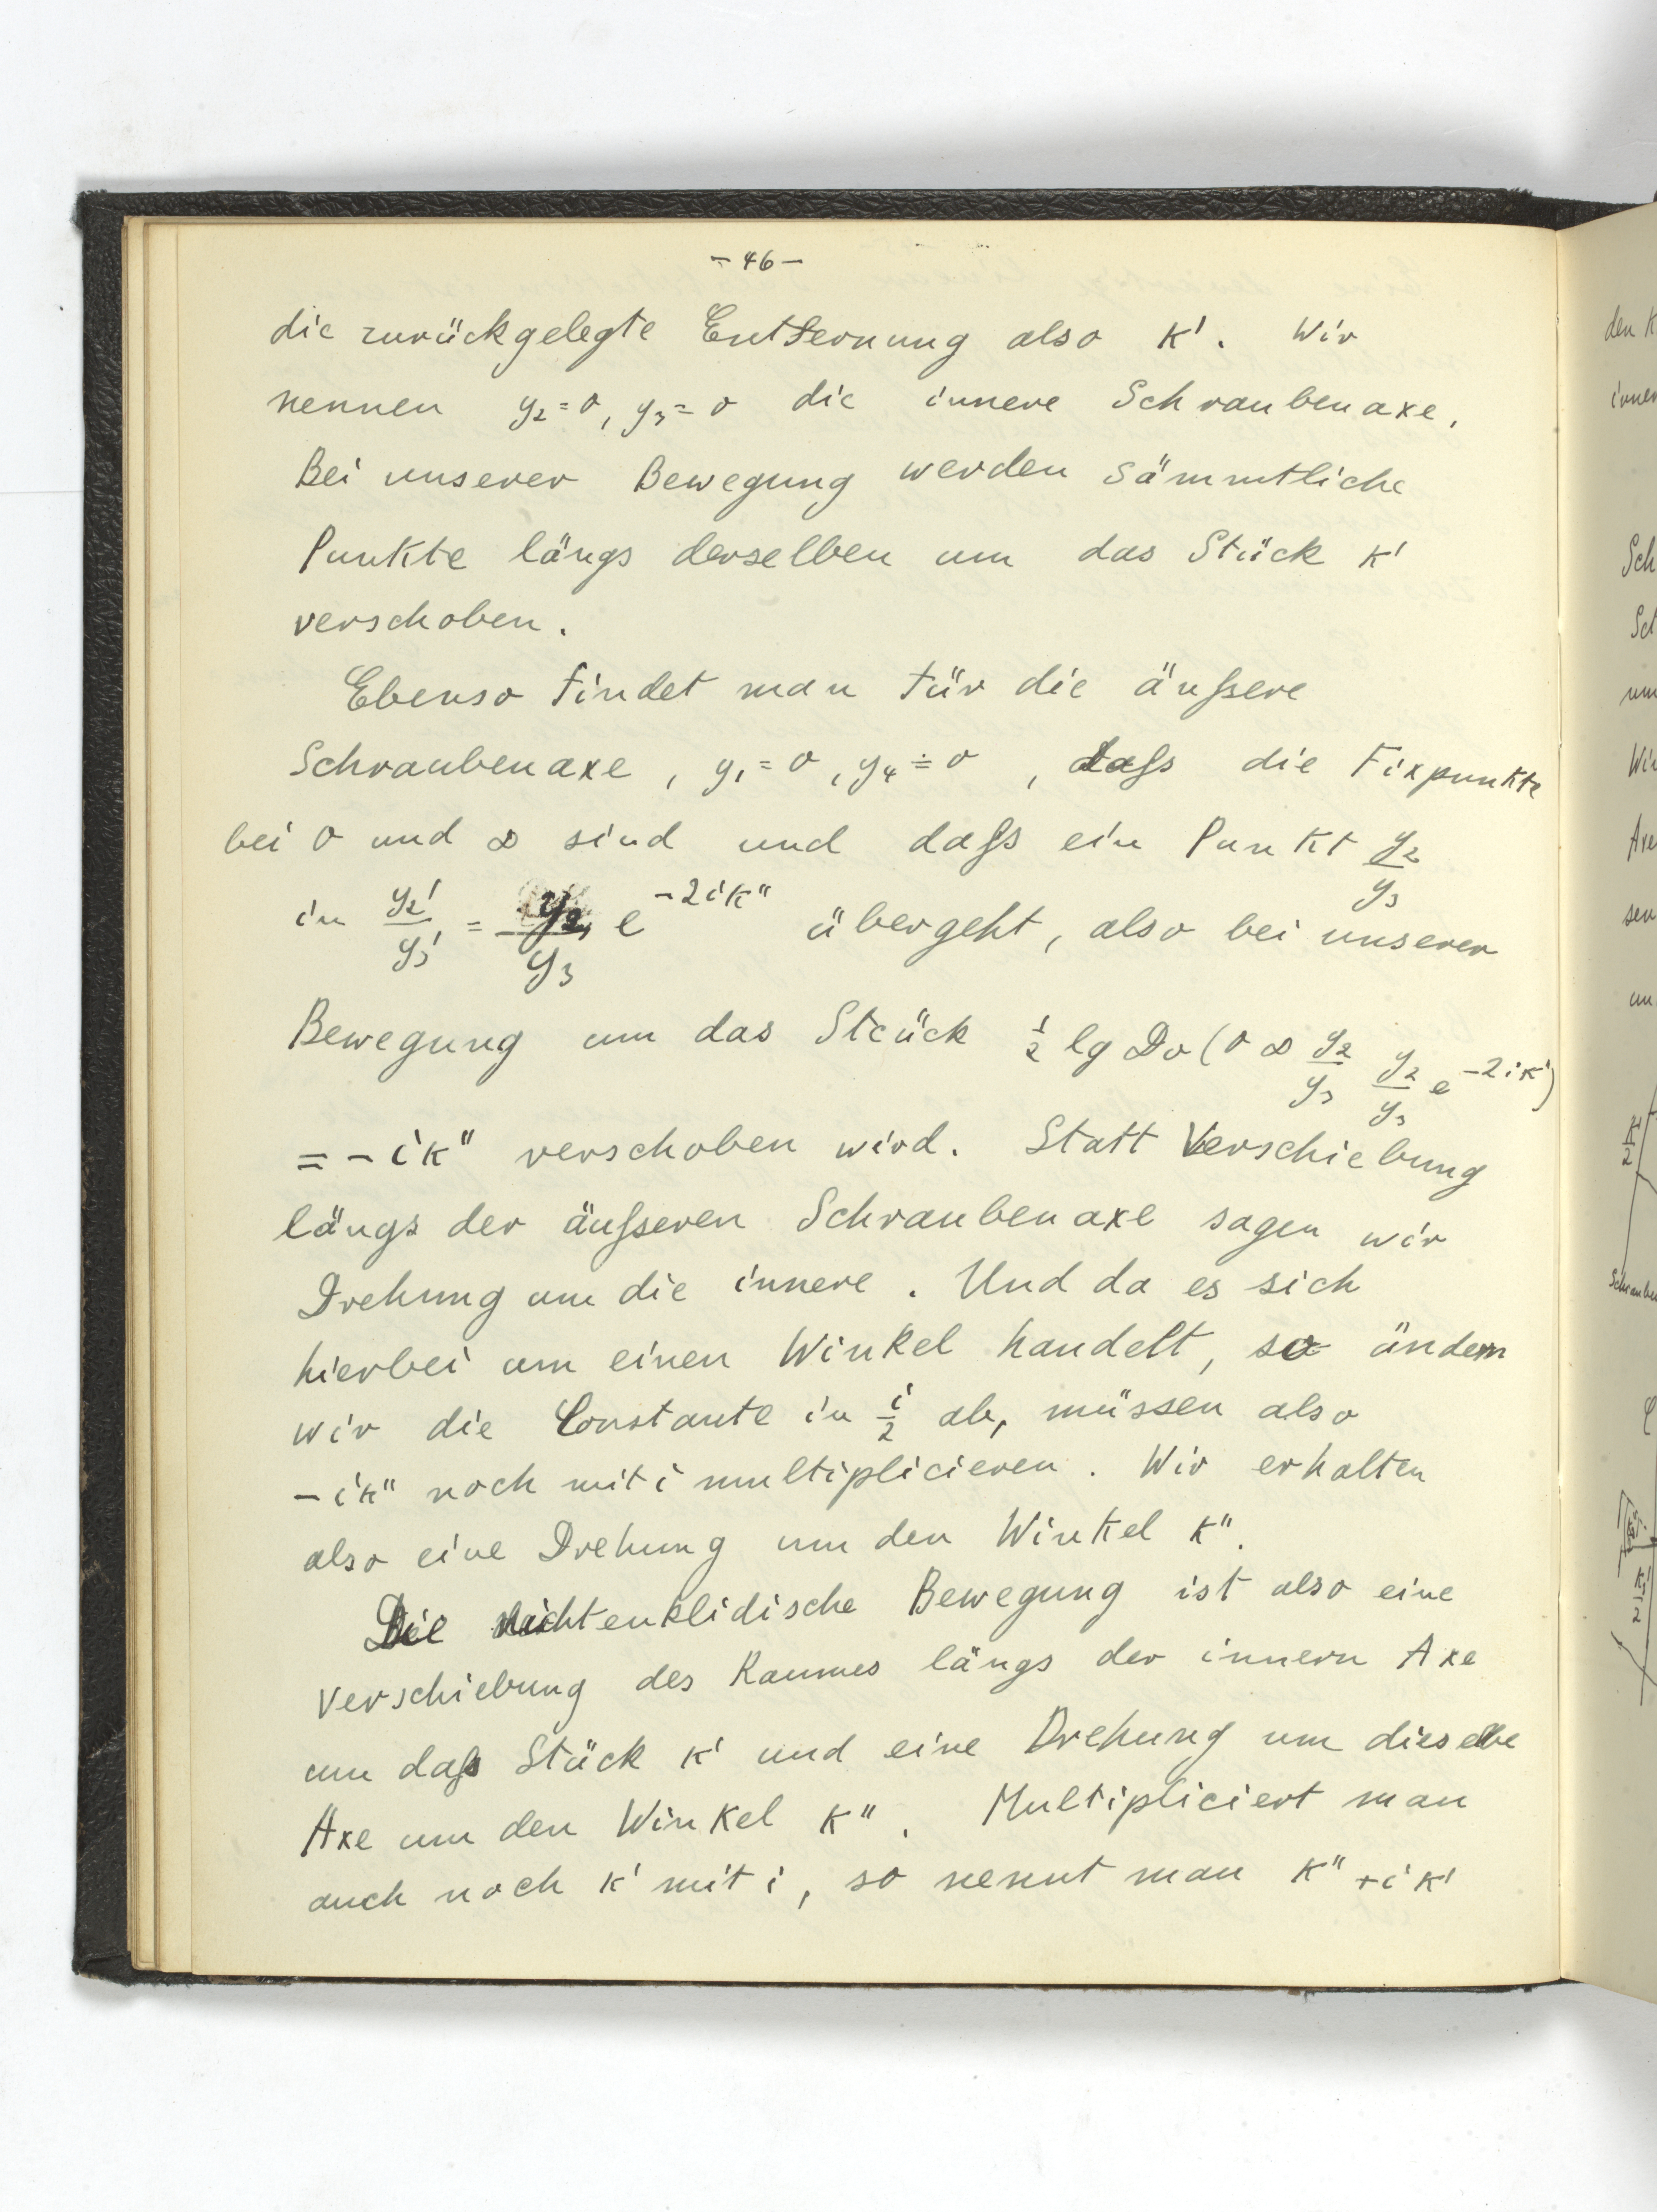 - 46 -
die zurückgelegte Entfernung also κ'. Wir
nennen y₂=0, y₃=0 die innere Schraubenaxe.
Bei unserer Bewegung werden sämmtliche
Punkte längs derselben um das Stück κ'
verschoben.
Ebenso findet man für die äußere
Schraubenaxe, y₁=0, y₄=0, daß die Fixpunkte
bei 0 und ∞ sind und daß ein Punkt y₂/y₃
in y₂'/y₃' = y₂/y₃ e^{-2iκ''} übergeht, also bei unserer
Bewegung um das Stück ½ lg Dv (0 ∞ y₂/y₃ y₂/y₃ e^{-2iκ'})
= -iκ'' verschoben wird. Statt Verschiebung
längs der äußeren Schraubenaxe sagen wir
Drehung um die innere. Und da es sich
hierbei um einen Winkel handelt, so ändern
wir die Constante in i/2 ab, müssen also
-iκ'' noch mit i multiplicieren. Wir erhalten
also eine Drehung um den Winkel κ''.
Die nichteuklidische Bewegung ist also eine
Verschiebung des Raumes längs der innern Axe
um daß Stück κ' und eine Drehung um dieselbe
Axe um den Winkel κ''. Multipliciert man
auch noch κ' mit i, so nennt man κ''+iκ'
den K
Sch
Wi
κ'/2